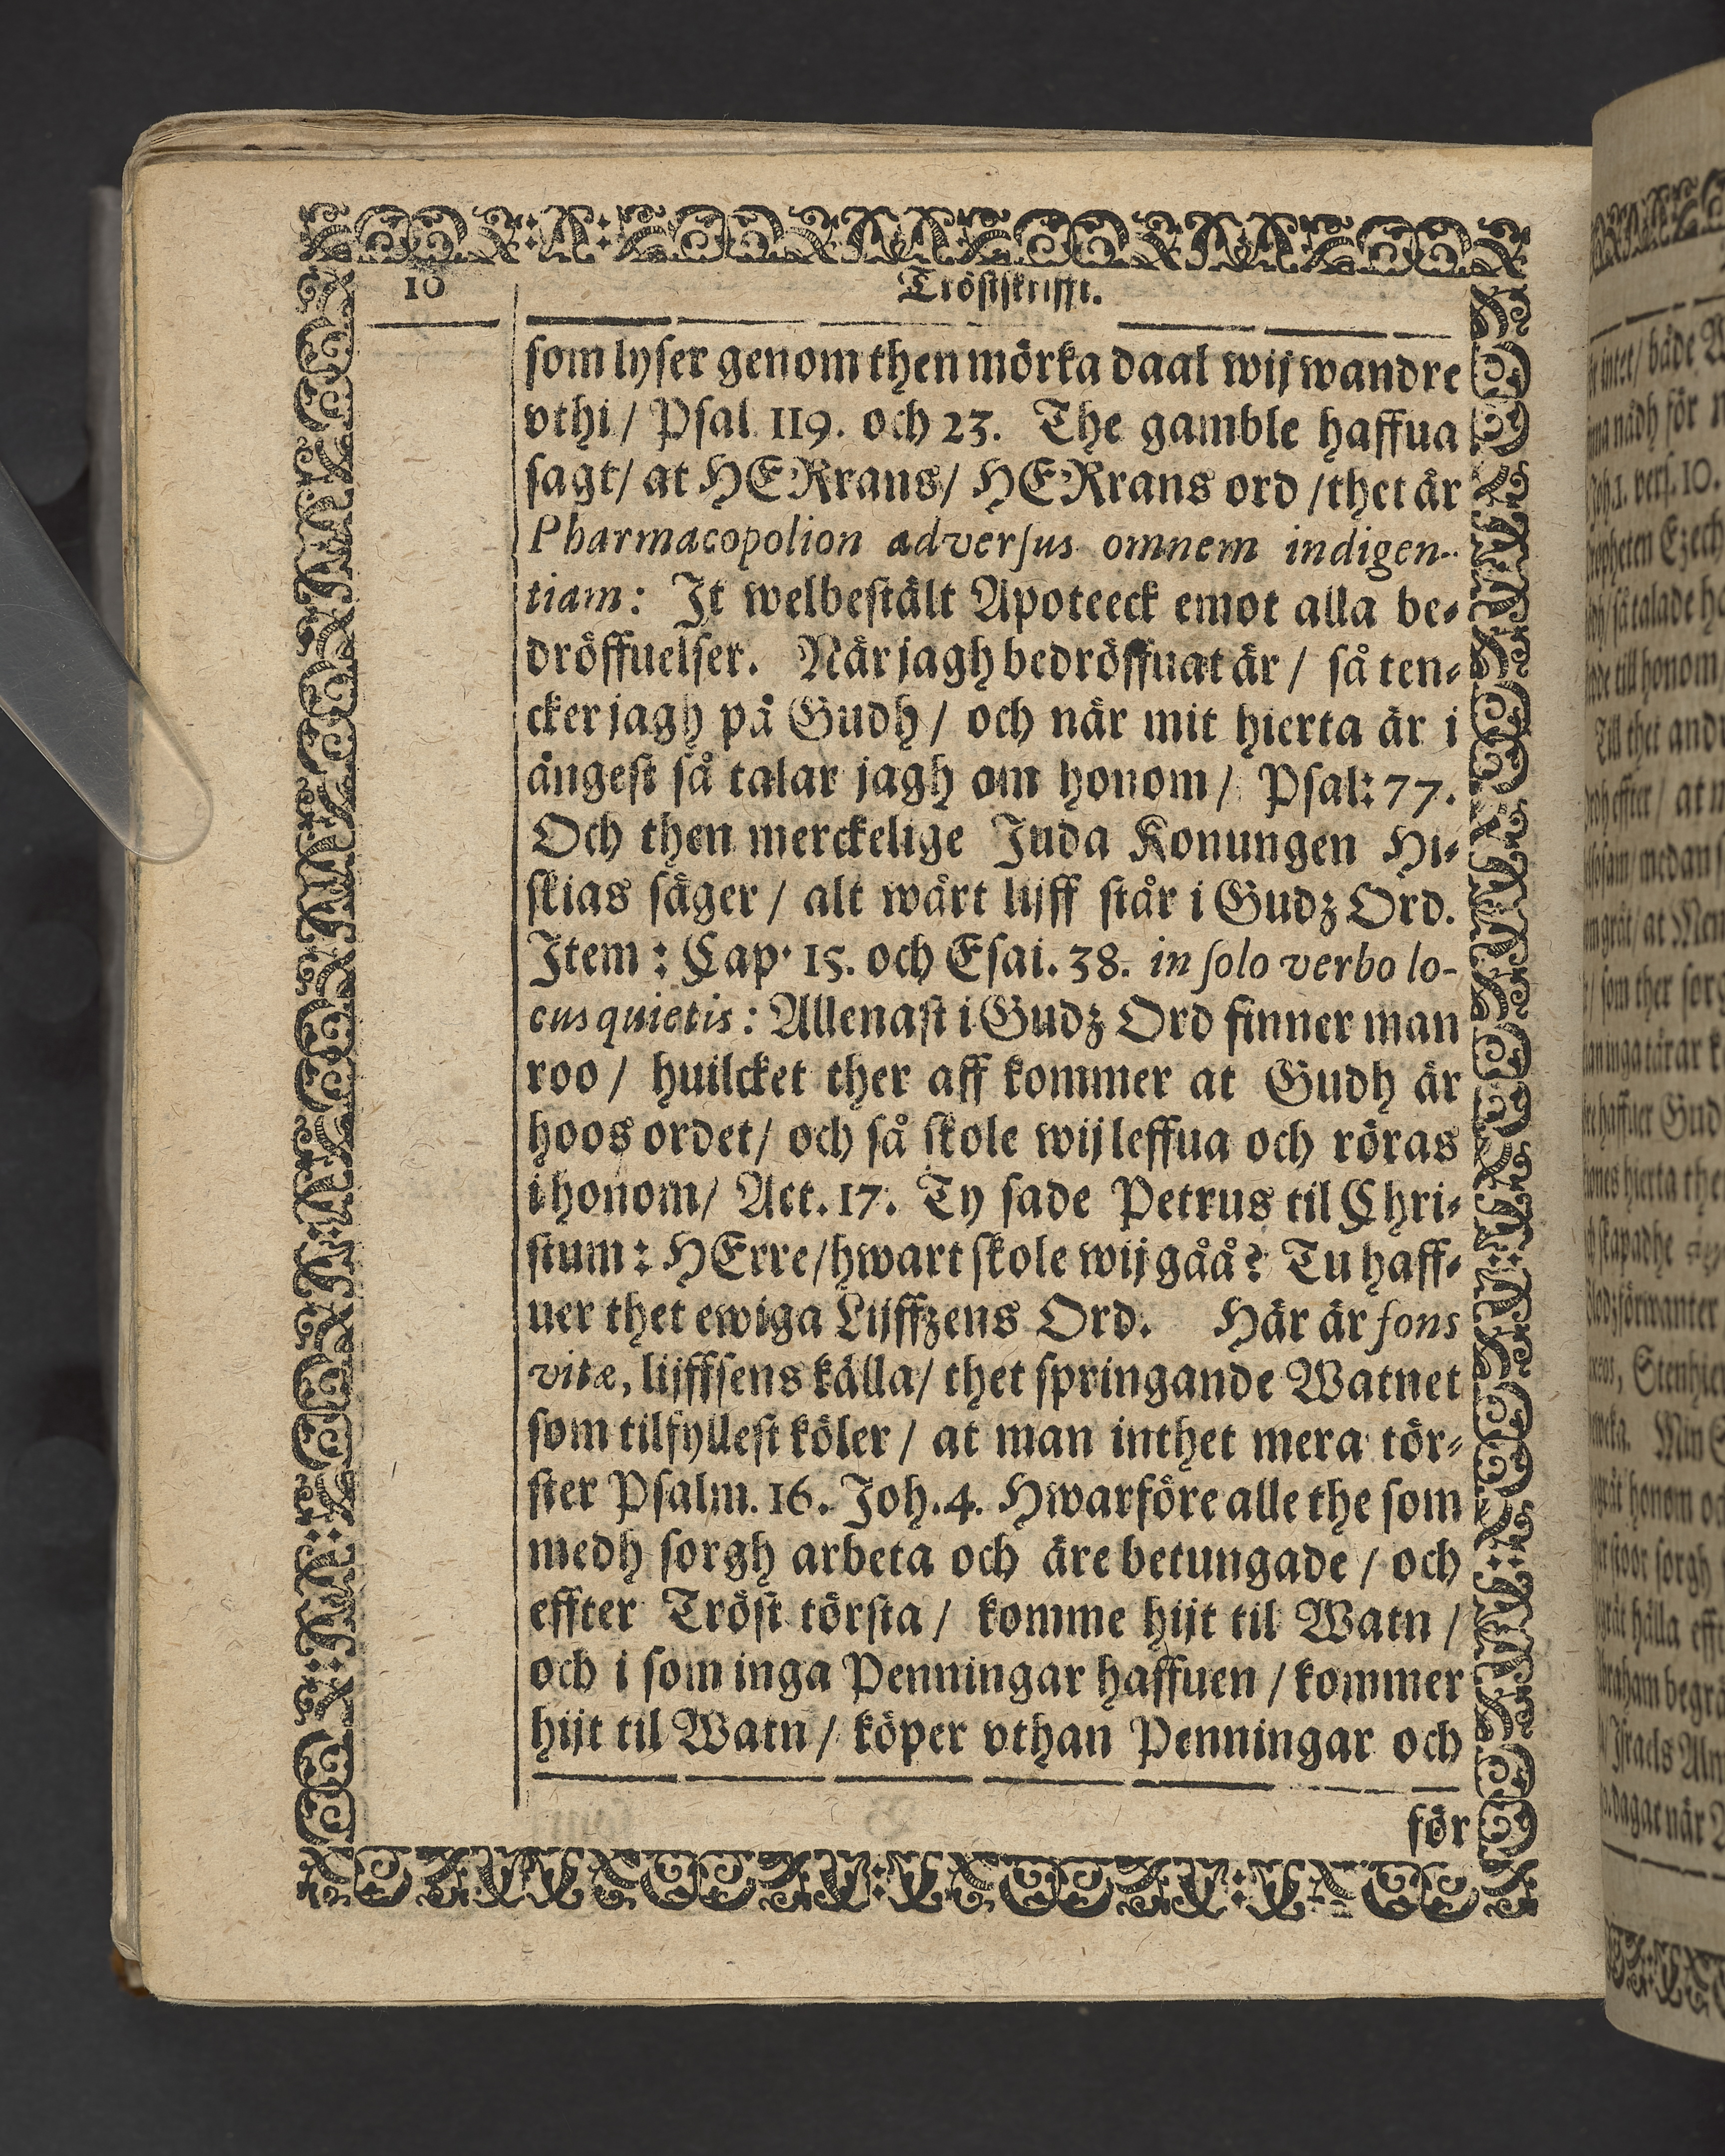 10
Tröstskrifft.
som lyser genom then mörka daal wij wandre
vthi / Psal 119. och 23. The gamble haffua
sagt / at HERrans / HERrans ord / thet är
Pharmacopolion adversus omnem indigen-
tiam: It welbestält Apoteeck emot alla be-
dröffuelser. När jagh bedröffuat är / så ten-
cker jagh på Gudh / och när mit hierta är i
ångest så talar jagh om honom / Psal: 77.
Och then merckelige Juda Konungen Hi-
skias säger / alt wårt lijff står i Gudz Ord.
Item: Cap. 15. och Esai. 38. in solo verbo lo-
cus quietis: Allenast i Gudz Ord finner man
roo / huilcket ther aff kommer at Gudh är
hoos ordet / och så skole wij leffua och röras
i honom / Act. 17. Ty sade Petrus til Chri-
stum: HErre / hwart skole wij gåå? Tu haff-
uer thet ewiga Lijffzens Ord. Här är fons
vitæ, lijffsens källa / thet springande Watnet
som tilfyllest köler / at man inthet mera tör-
ster Psalm. 16. Joh. 4. Hwarföre alle the som
medh sorgh arbeta och äre betungade / och
effter Tröst törsta / komme hijt til Watn /
och i som inga Penningar haffuen / kommer
hijt til Watn / köper vthan Penningar och
för